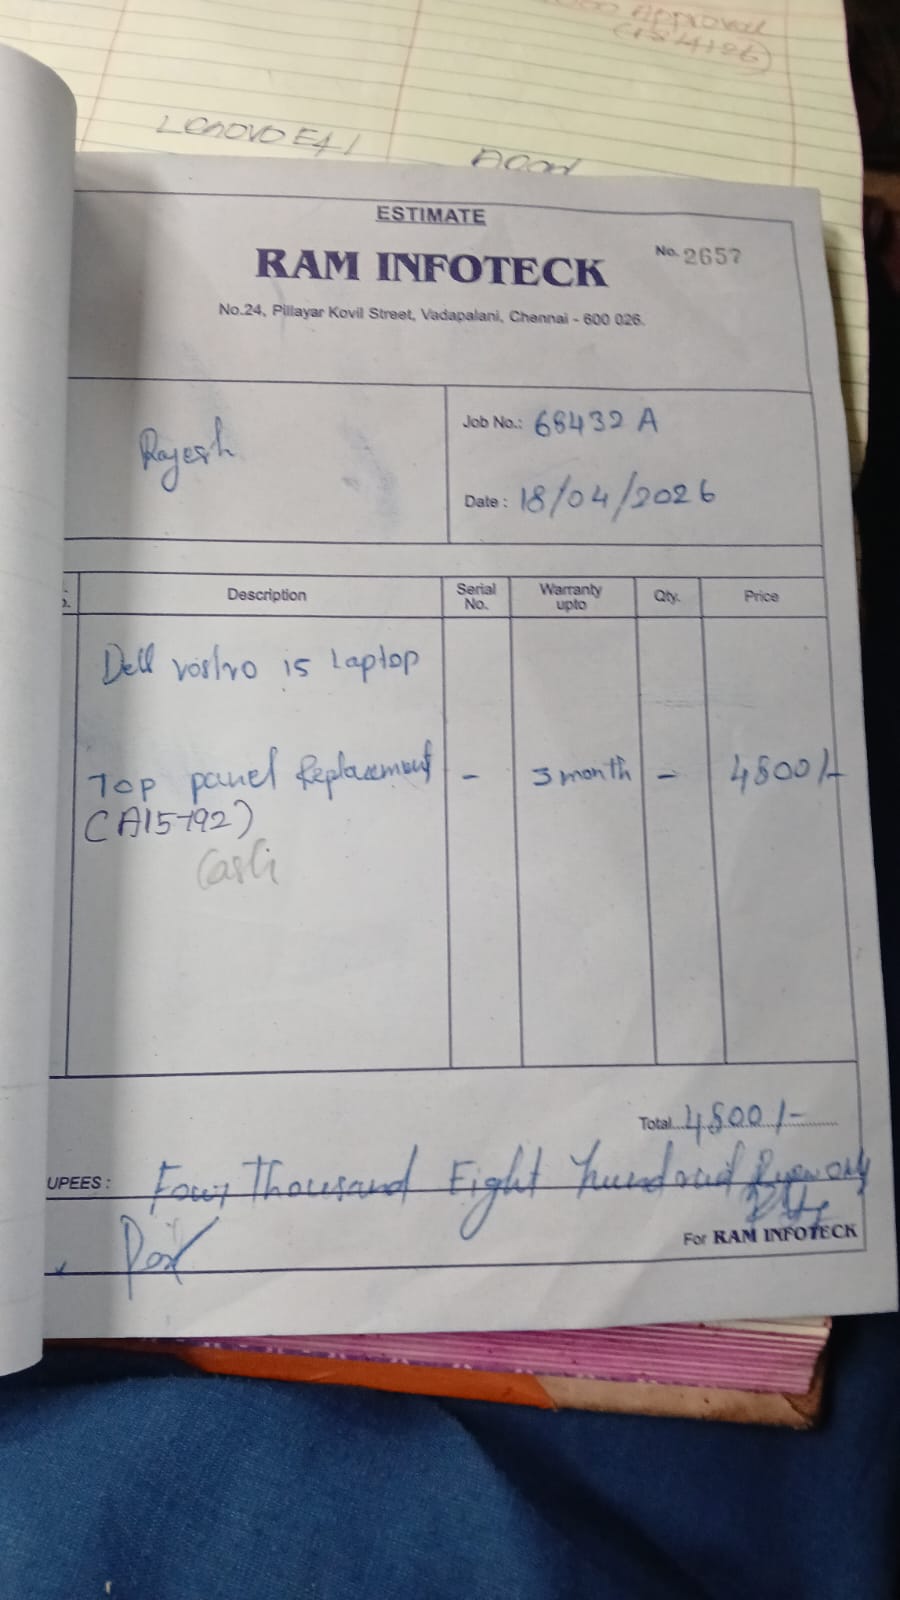 Approval
Lenovo E41
ESTIMATE
RAM INFOTECK
No. 2657
No.24, Pillayar Kovil Street, Vadapalani, Chennai - 600 026.
Rajesh
Job No.: 68432 A
Date : 18/04/2026
Description Serial No. Warranty upto Qty. Price
Dell vostro 15 Laptop
Top panel Replacement - 3 month - 4800/-
(A15-792)
Total 4800/-
UPEES : Four Thousand Eight hundred only
For RAM INFOTECK